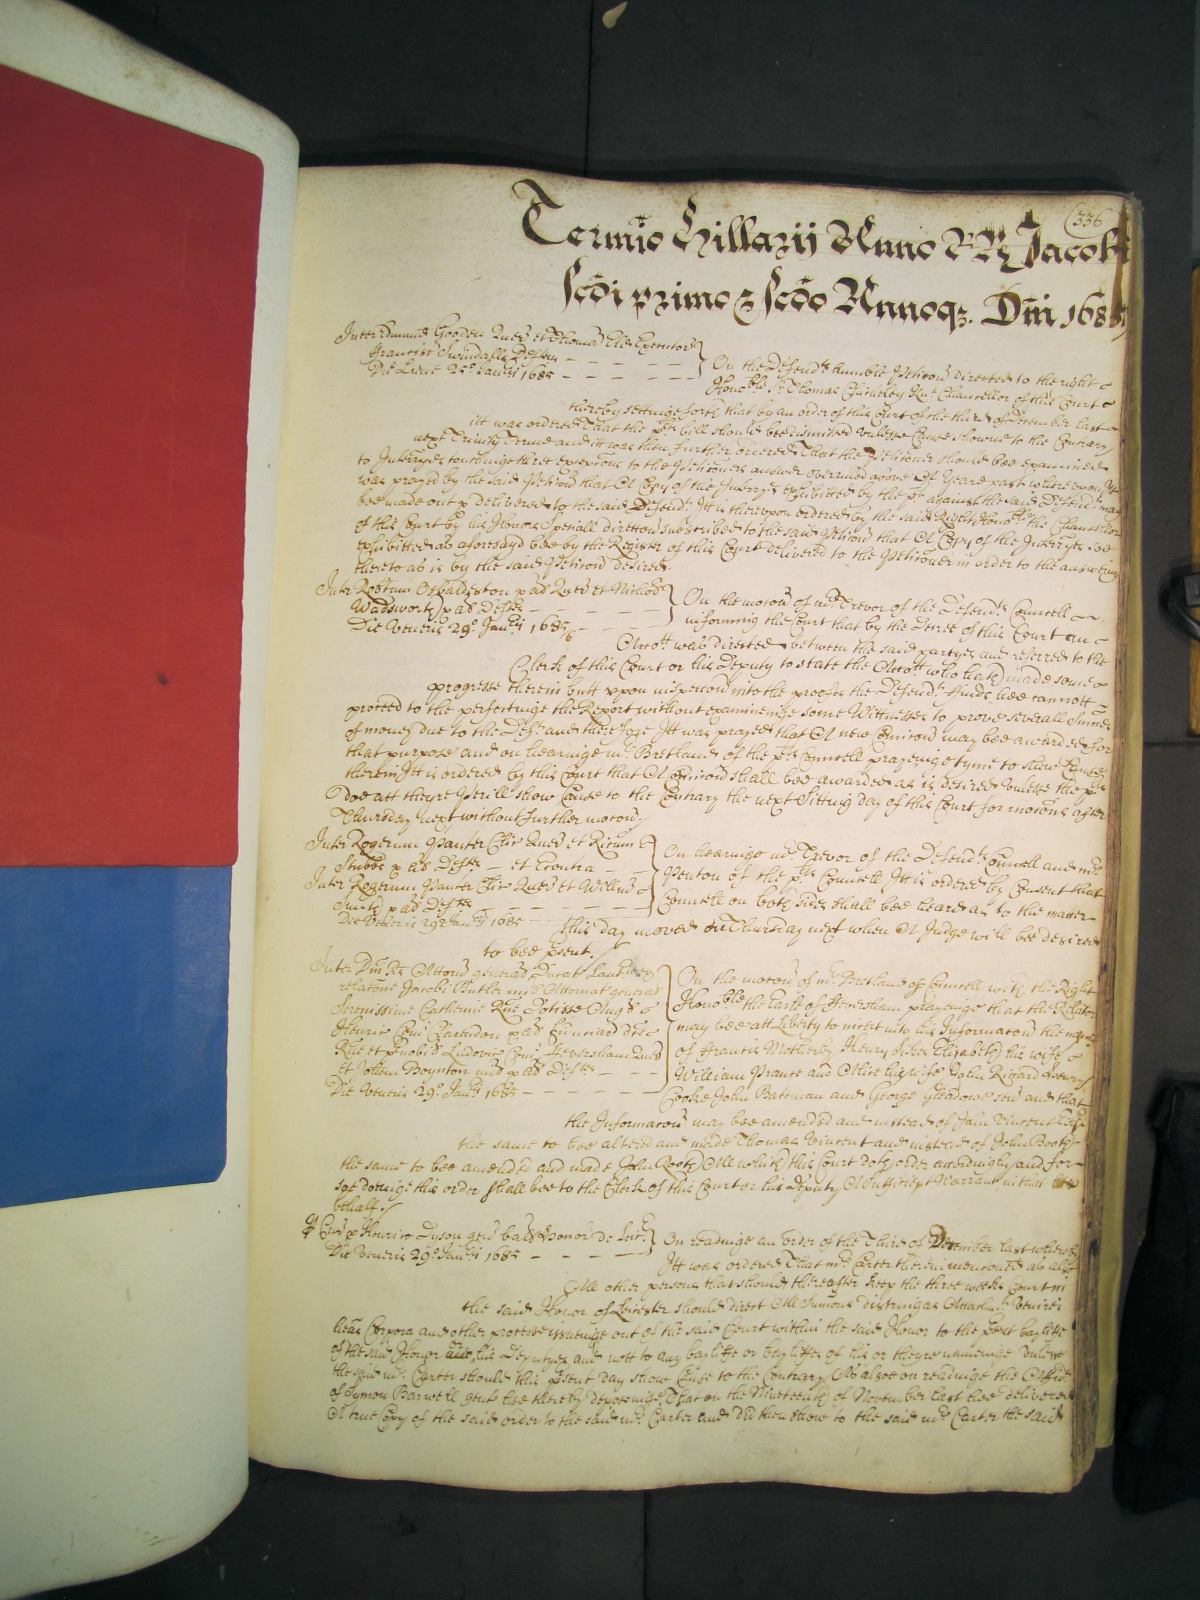 336
Termio Hillarij Anno RRs Jacobi
Scdi primo & Scdo Annoq. Dni 1685
Inter Edmund Gooden Quer et Thomas Executor
Francisc Swindalls Deften
Die Lune 25o Januarij 1685
On the Defendts humble Peticon directed to the right
Honoble Sr Thomas Chicheley Knt Chancellor of this Court
thereby settinge forth that by an order of this Court of the third of December last
itt was ordered That the pts bill should bee dismissed unlesse Cause showne to the Contrary
next Trinity Terme and itt was then further ordered That the Peticoner should bee examined
to Interryes touchinge three excepcons to the Peticoners answer overruled above A Yeare past whereupon itt
was prayed by the said Peticon that A Copy of the Interryes exhibitted by the pt against the said Defendt may
bee made out & delivered to the said Defendt It is thereupon ordered by the said Right Honoble the Chancellor
of this Court by his Honors Speciall direccon subscribed to the said Peticon that A Copy of the Interryes soe
exhibitted as aforesayd bee by the Register of this Court delivered to the Peticoner in order to the answering
thereto as is by the said Peticon desired.
Inter Robtum Osbaldeston & als Quer et Nichos
Wadsworth & als Deften
Die Veneris 29o Januarij 1685/6
On the mocon of mr Trevor of the Defendts Councell
informing the Court that by the Decree of this Court an
Accott was directed between the said partyes and referred to the
Clerk of this Court or his Deputy to state the Accott who hath made some
progresse therein butt upon inspeccon into the proofes the Defendt finds hee cannott
proceed to the perfectinge the Report without examineinge some Wittnesses to prove severall Summes
of money due to the Deft and therefore Itt was prayed that A new Comicon may bee awarded for
that purpose and on hearinge mr Bretland of the pts Councell prayeinge tyme to show Cause
therein Itt is ordered by this Court that A Comicon shall bee awarded as is desired unlesse the pt
Doe att theyre Perill show Cause to the Contrary the next Sitting day of this Court for mocons after
Thursday next without further mocon.
Inter Rogerum Manter Clic Quer et Ricum
Stubbs & als Deften et Econtra
Inter Rogerum Manter Clic Quer et Willm
Smith & als Deften
Die Veneris 29o Januarij 1685
On hearinge mr Trevor of the Defendts Councell and mr
Penton of the pts Councell Itt is ordered by Consent that
Councell on both sides shall bee heard as to the matter
this day moved on Thursday next when A Judge will bee desired
to bee psent.
Inter Dm Rs Attorn general Ducat Lancastr
relacone Jacobi Butler mil Attornat general
Serenissime Catherine Rne Dotisse Ang
Henrici Comi Clarendon & als
Rne et pnobil Ludovic Comi Feversham Quer
et Johem Boynton mil & als Deften
Die Veneris 29o Januarij 1685
On the mocon of mr Bretland of Councell with the Right
Honoble the Earle of Feversham prayeinge that the Relator
may bee att Liberty to insert into his Informacon the names
of Francis Motherby Henry Sikes Elizabeth his wife
William Prance and Alice his wife John Rigard
Cooke John Bateman and George Gleadowe senr and that
the Informacon may bee amended and instead of John Vincent
the same to bee altered and made Thomas Vincent and instead of John Booth
the same to bee amended and made John Rooth All which this Court doth order accordingly and for
soe doeinge this order shall bee to the Clerk of this Court or his Deputy A Sufficient Warrant in that
behalf.
Henrico Dyson gen Honor de Leic
Die Veneris 29o Januarij 1685
On readinge an order of the Third of December last whereby
Itt was ordered That mr Carter therein menconed as also
All other persons that should thereafter keep the three weeks Court in
the said Honor of Leicester should direct All Sumons distringas Attachmts Venires
heas Corpora and other processe issueinge out of the said Court within the said Honor to the Chief bayliffe
of the said Honor and his Deputyes and nott to any bayliffe or bayliffes of his or theyre nameinge unlesse
the said mr Carter should this psent day show Cause to the Contrary As alsoe on readinge the Affidt
of Symon Barwell gent hee thereby deposeinge That on the Nineteenth of November last hee delivered
A true Copy of the said order to the said mr Carter and did then show to the said mr Carter the said